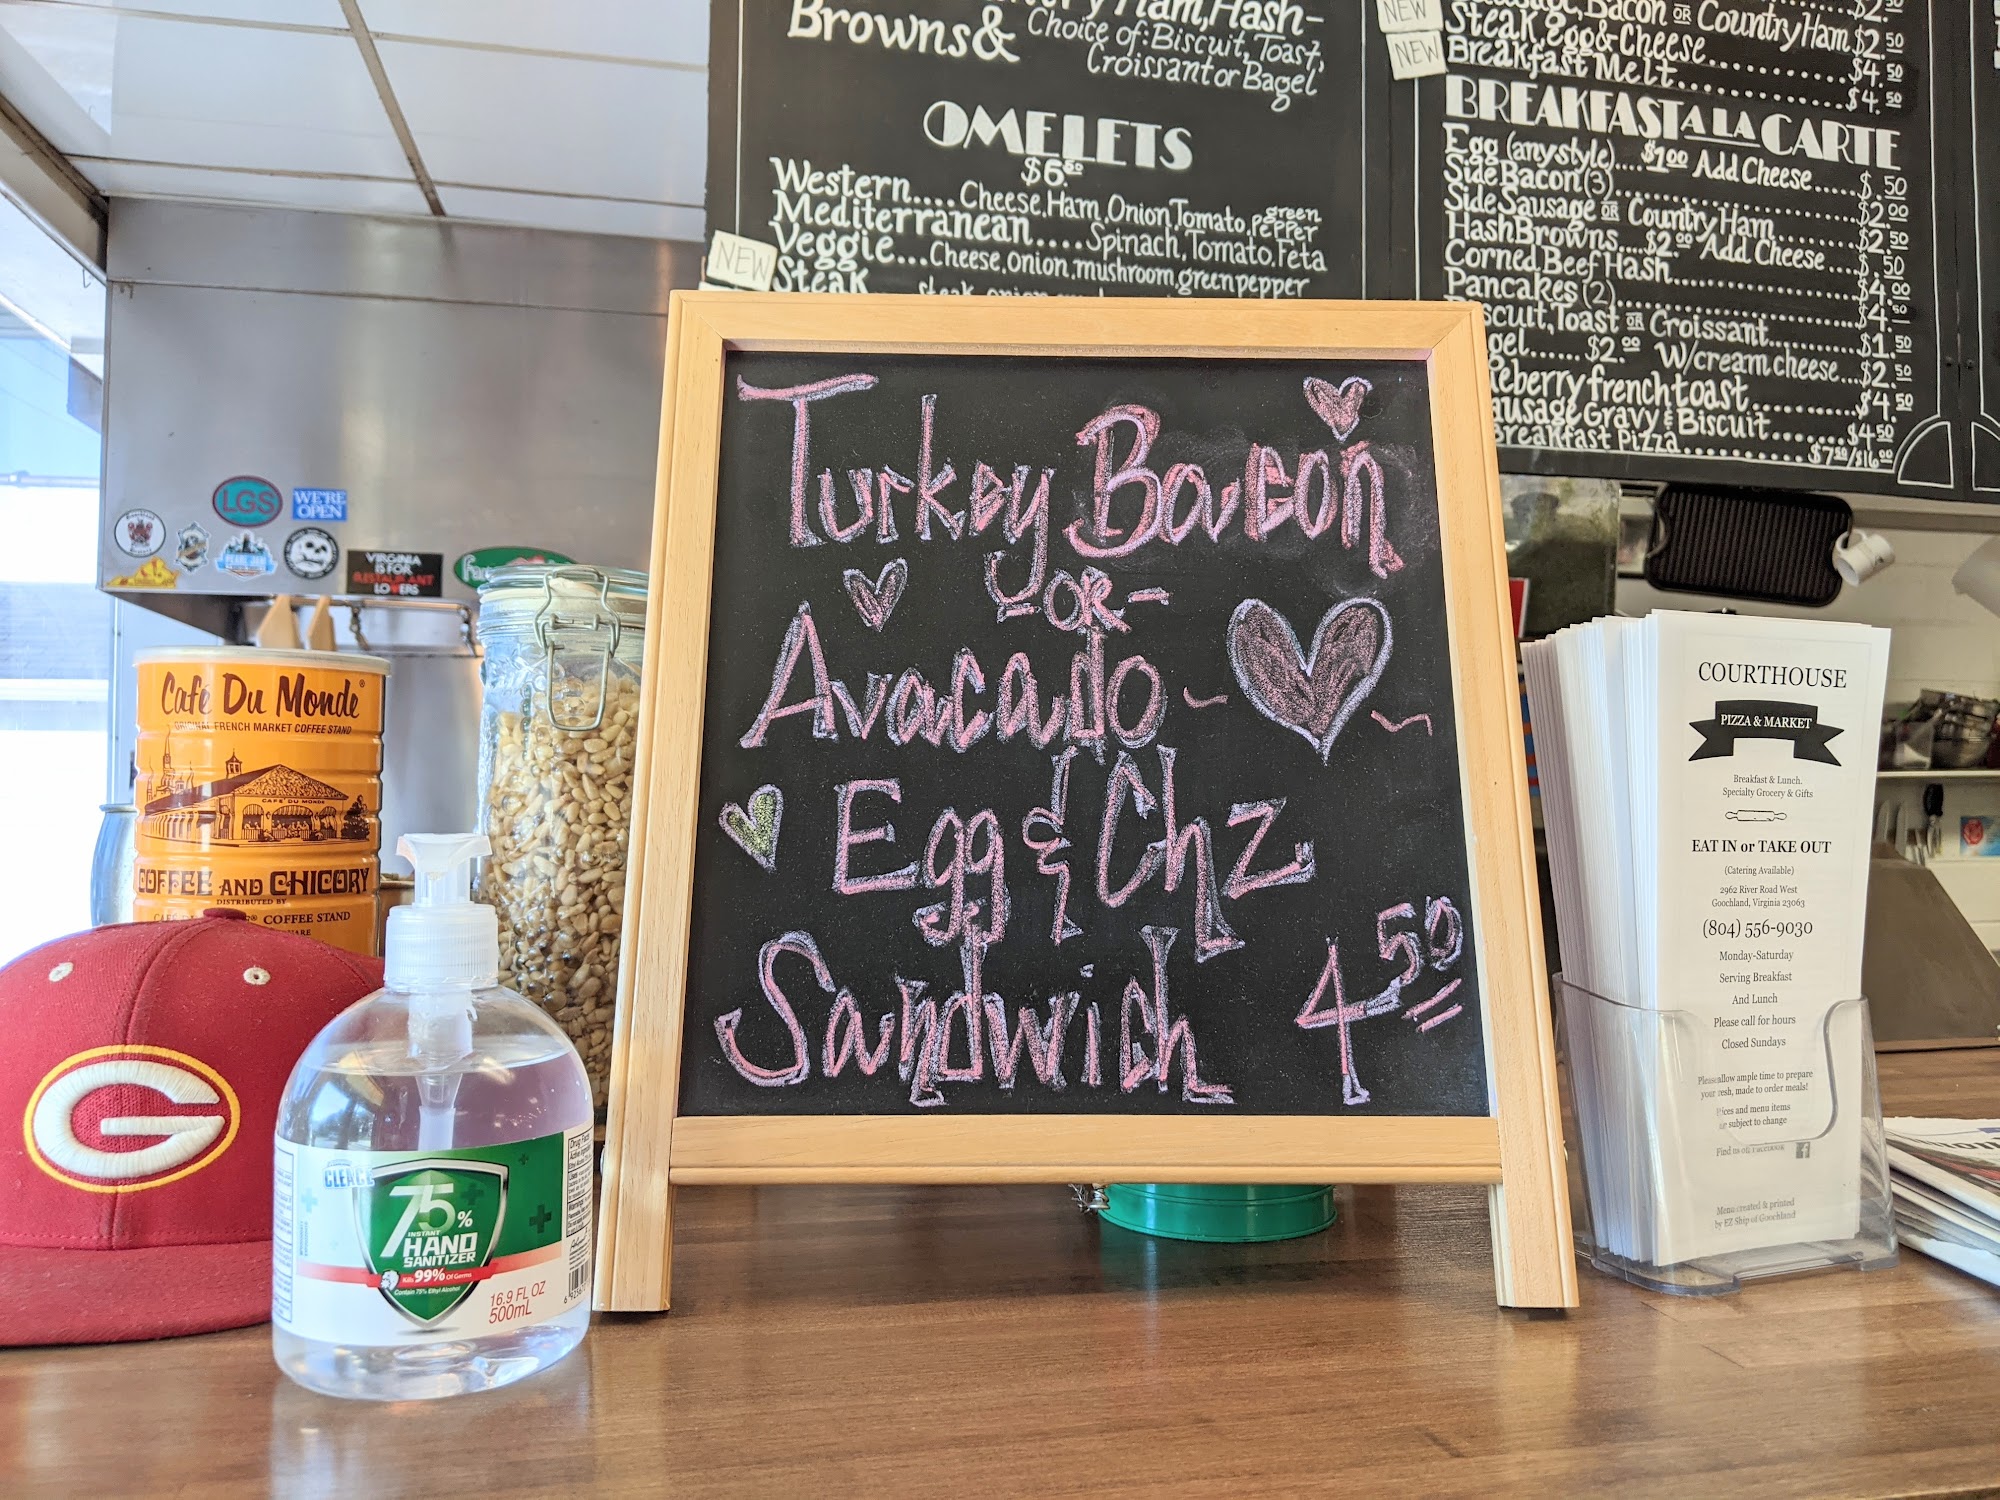 Ham, Hash-
Browns &
Choice of: Biscuit, Toast,
Croissant or Bagel
OMELETS
$6.50
Western.... Cheese, Ham, Onion, Tomato, green pepper
Mediterranean.... Spinach, Tomato, Feta
Veggie... Cheese, onion, mushroom, green pepper
NEW
Steak
steak, onion
NEW
Bacon OR Country Ham $2.50
NEW
Steak, Egg & Cheese........ $4.50
Breakfast Melt............ $4.50
BREAKFAST A LA CARTE
Egg (any style).... $1.00 Add Cheese..... $.50
Side Bacon (3)............ $2.00
Side Sausage OR Country Ham....... $2.50
Hash Browns.... $2.00 Add Cheese.... $.50
Corned Beef Hash............ $4.00
Pancakes (2)............ $4.50
Toast OR Croissant......... $1.50
$2.00 W/cream cheese... $2.50
french toast......... $4.50
Sausage Gravy & Biscuit....... $4.50
Breakfast Pizza......... $7.50/$16.00
LGS
WE'RE
OPEN
PEARL JAM
VIRGINIA
IS FOR
RESTAURANT
LOVERS
Café Du Monde®
ORIGINAL FRENCH MARKET COFFEE STAND
CAFE DU MONDE
COFFEE AND CHICORY
DISTRIBUTED BY
COFFEE STAND
G
CLEACE
75%
INSTANT
HAND
SANITIZER
Kills 99% Of Germs
Contain 75% Ethyl Alcohol
16.9 FL OZ
500mL
Drug Facts
Turkey Bacon
-OR-
Avocado
Egg & Chz
Sandwich 4.50
COURTHOUSE
PIZZA & MARKET
Breakfast & Lunch.
Specialty Grocery & Gifts
EAT IN or TAKE OUT
(Catering Available)
2962 River Road West
Goochland, Virginia 23063
(804) 556-9030
Monday-Saturday
Serving Breakfast
And Lunch
Please call for hours
Closed Sundays
Please allow ample time to prepare
your fresh, made to order meals!
Prices and menu items
subject to change
Find us on Facebook
f
Menu created & printed
by EZ Ship of Goochland